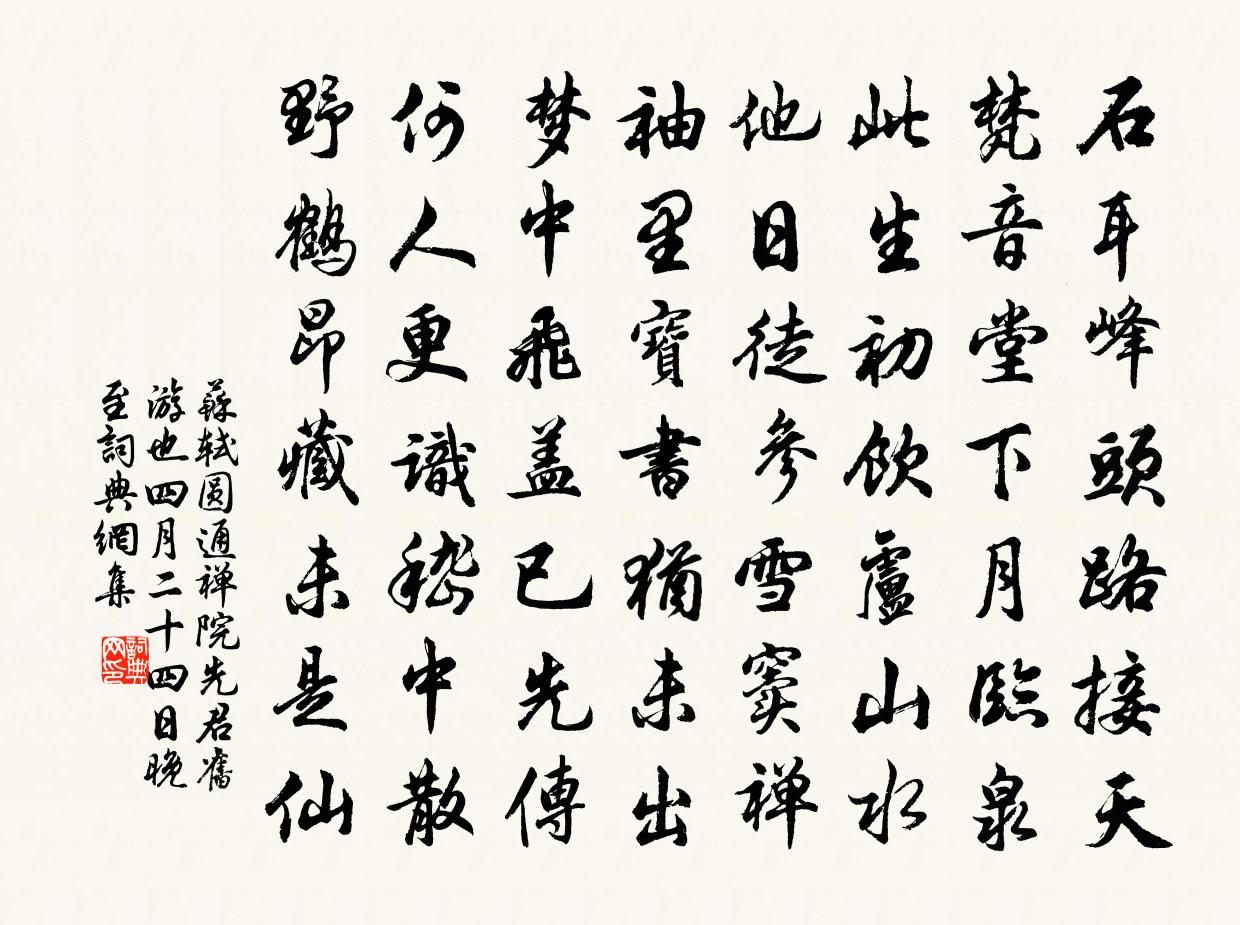 石耳峰頭路接天
梵音堂下月臨泉
此生初飲廬山水
他日徒參雪竇禅
袖里寶書猶未出
梦中飛盖已先傳
何人更識嵇中散
野鶴昂藏未是仙
蘇軾圆通禅院先君舊
游也四月二十四日晚
至詞典網集
詞典
网印